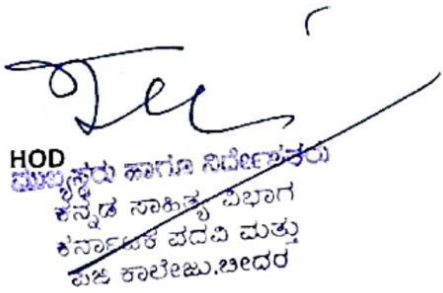 HOD
ಮುಖ್ಯಸ್ಥರು ಹಾಗೂ ನಿರ್ದೇಶಕರು
ಕನ್ನಡ ಸಾಹಿತ್ಯ ವಿಭಾಗ
ಕರ್ನಾಟಕ ಪದವಿ ಮತ್ತು
ಪಿಜಿ ಕಾಲೇಜು.ಬೀದರ